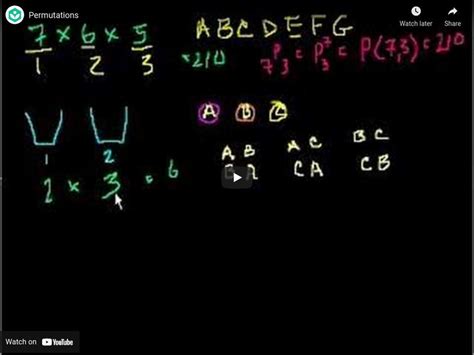 Permutations
Watch later
Share
7 × 6 × 5 = 210
1 2 3
A B C D E F G
₇P₃ = P₃⁷ = P(7,3) = 210
A B C
1 2
2 × 3 = 6
A B A C B C
B A C A C B
Watch on YouTube